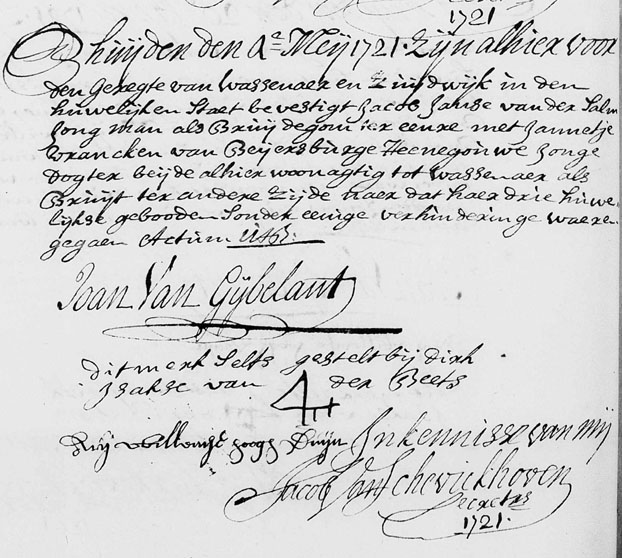 1721
Op huijden den 4e Meij 1721. Zijn alhier voor
den Geregte van Wassenaer en Zuijdwijk in den
huwelijken Staet bevestigt Jacob Janse van der Salm
Jong man als Bruijdegom ter eenre met Jannetje
Vrancken van Beijersburge Heenegouwe Jonge
dogter beijde alhier woonagtig tot Wassenaer als
Bruijt ter andere Zijde naer dat haer drie huwe-
lijkse gebooden Sonder eenige verhinderinge waeren
gegaen Actum
Joan Van Gijbelant
dit merk Selfs gestelt bij dirk
Isakse van der Beets
Duijn In kennisse van mij
Jacob Van Schevickhoven
Secrets
1721.